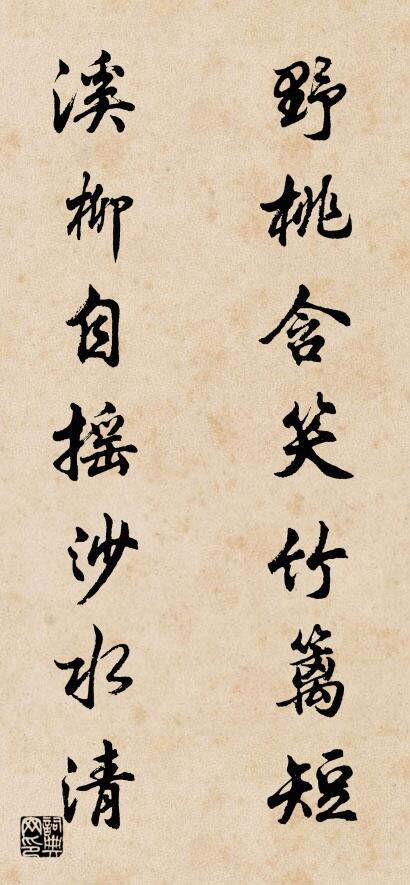 野桃含笑竹篱短
溪柳自摇沙水清
詞典網印